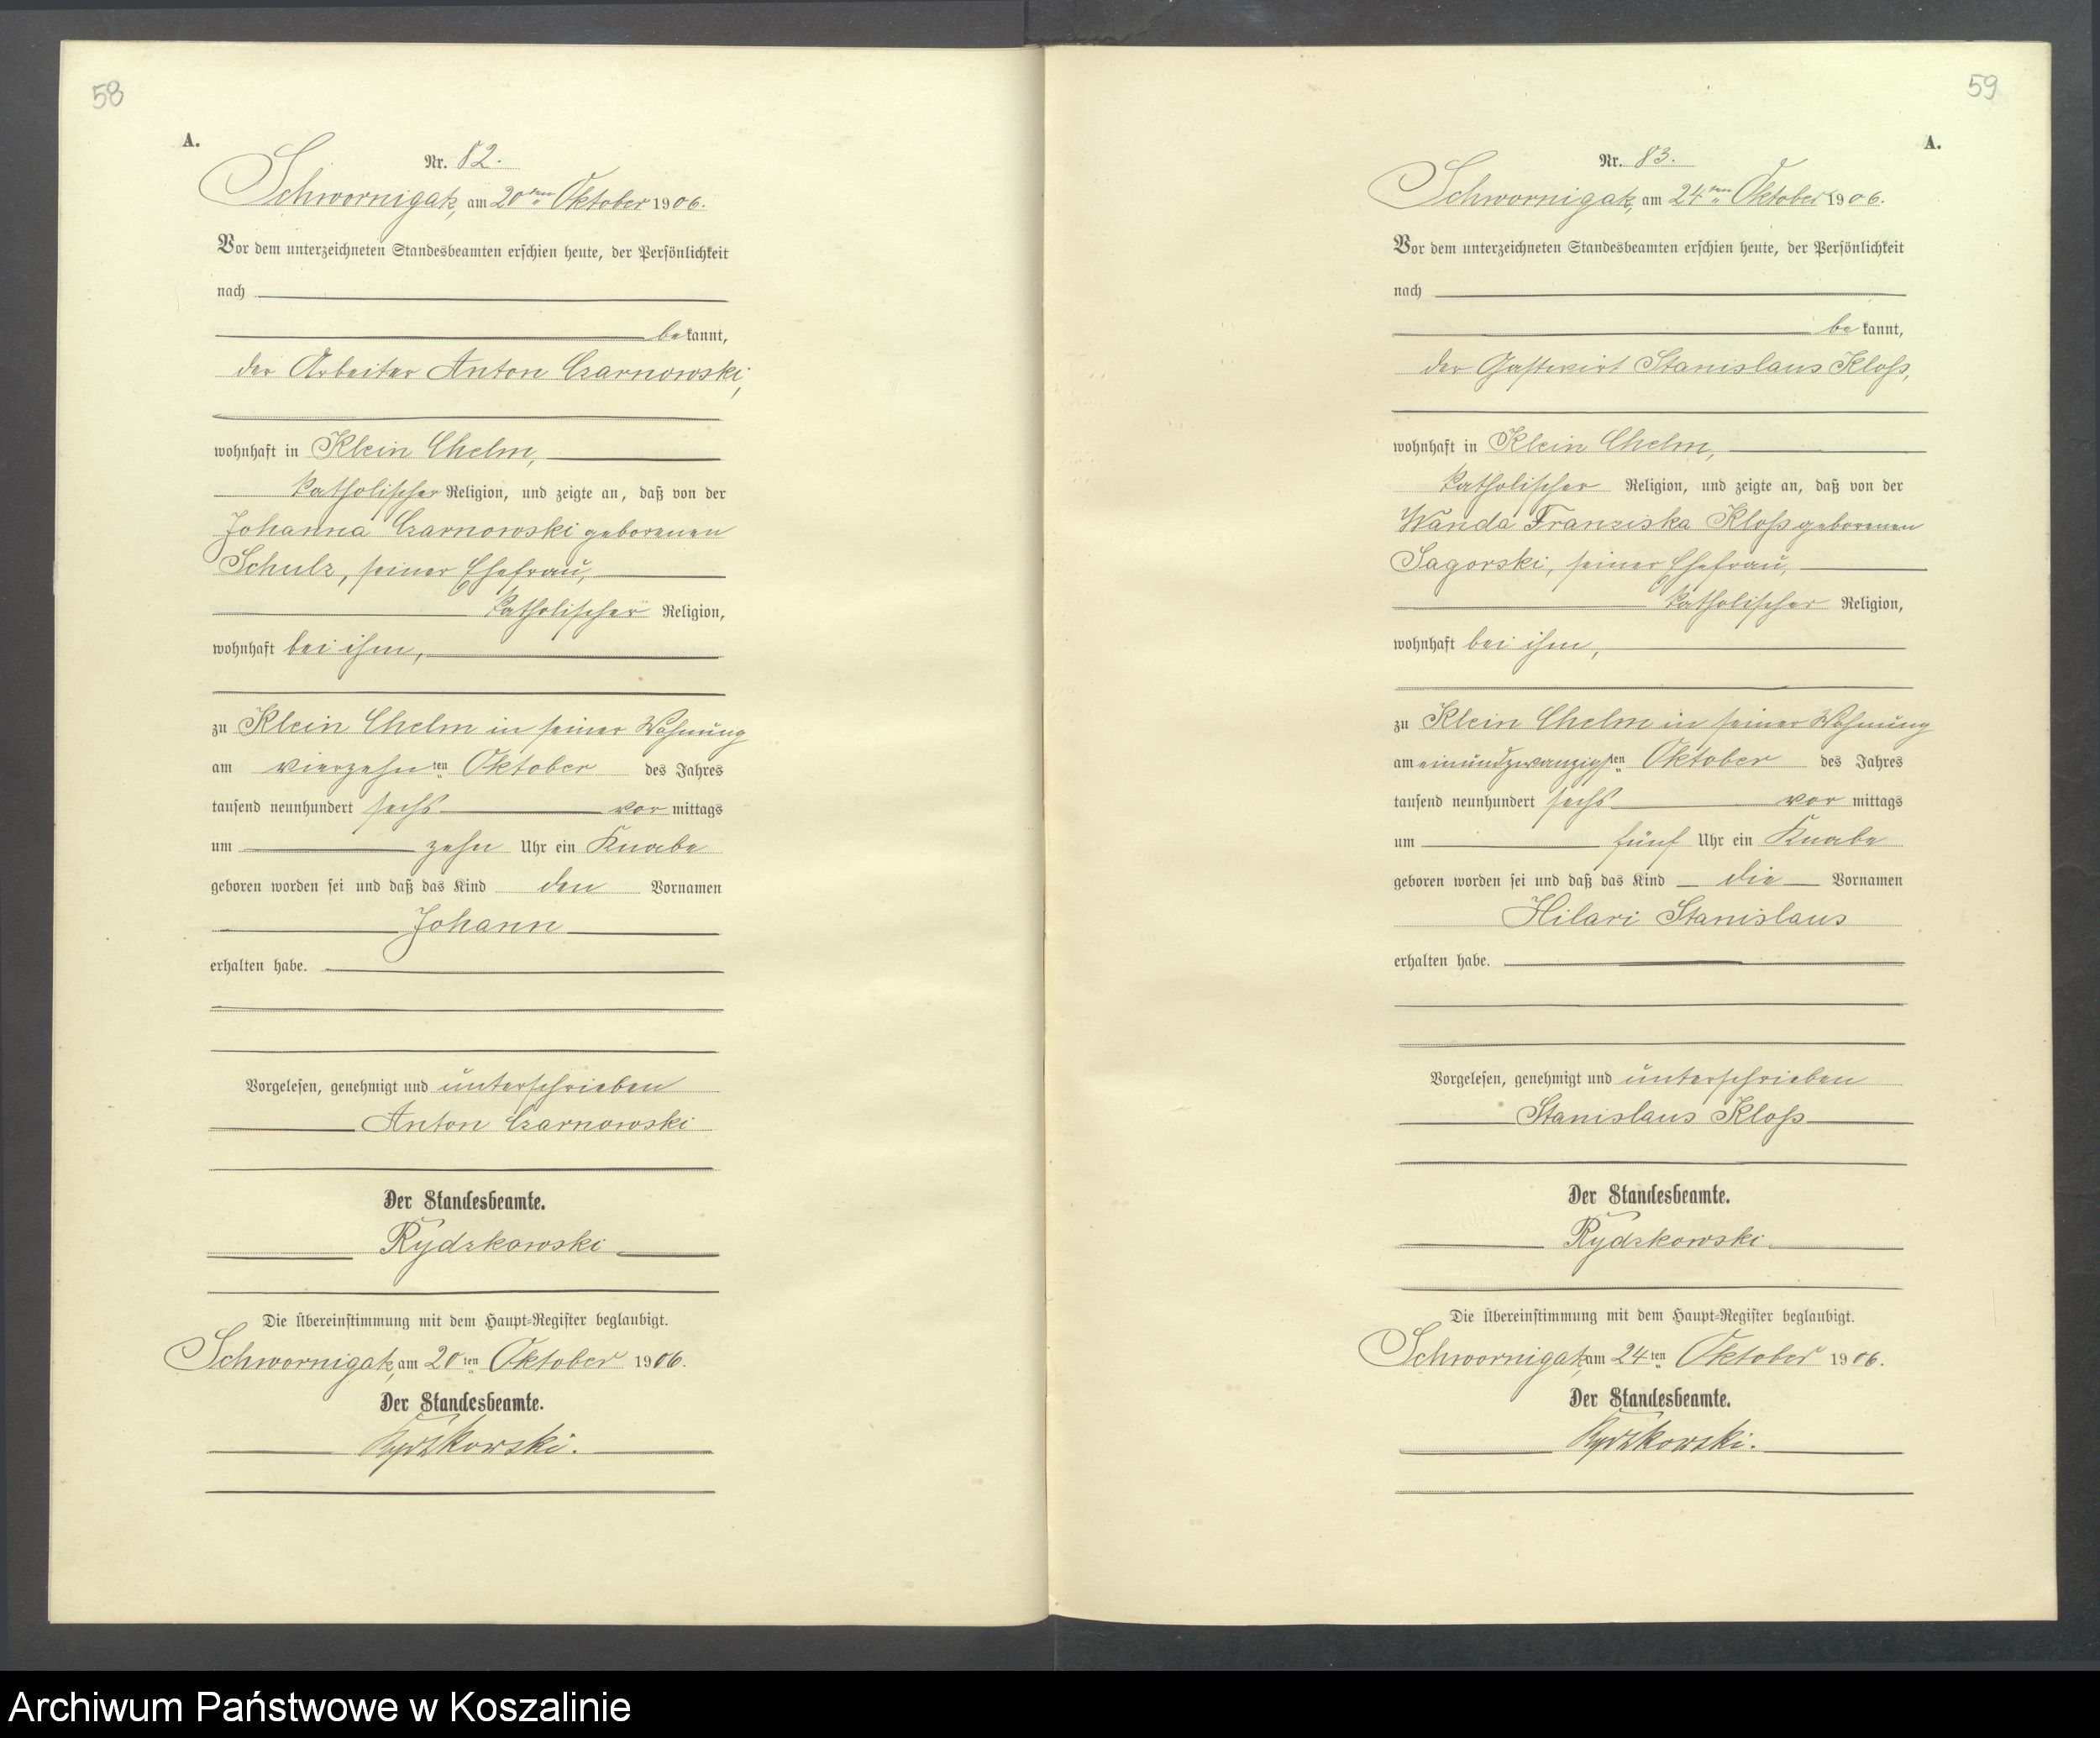 58
A.
Nr. 82.
Schwornigatz, am 20ten Oktober 1906.
Vor dem unterzeichneten Standesbeamten erschien heute, der Persönlichkeit
nach
bekannt,
der Arbeiter Anton Czarnowski,
wohnhaft in Klein Chelm,
katholischer Religion, und zeigte an, daß von der
Johanna Czarnowski geborenen
Schulz, seiner Ehefrau,
katholischer Religion,
wohnhaft bei ihm,
zu Klein Chelm in seiner Wohnung
am vierzehnten Oktober des Jahres
tausend neunhundert sechs vormittags
um zehn Uhr ein Knabe
geboren worden sei und daß das Kind den Vornamen
Johann
erhalten habe.
Vorgelesen, genehmigt und unterschrieben
Anton Czarnowski
Der Standesbeamte.
Rydzkowski
Die Übereinstimmung mit dem Haupt-Register beglaubigt.
Schwornigatz, am 20ten Oktober 1906.
Der Standesbeamte.
Rydzkowski.
59
A.
Nr. 83.
Schwornigatz, am 24ten Oktober 1906.
Vor dem unterzeichneten Standesbeamten erschien heute, der Persönlichkeit
nach
bekannt,
der Gastwirt Stanislaus Kloß,
wohnhaft in Klein Chelm,
katholischer Religion, und zeigte an, daß von der
Wanda Franziska Kloß geborenen
Sagorski, seiner Ehefrau,
katholischer Religion,
wohnhaft bei ihm,
zu Klein Chelm in seiner Wohnung
am einundzwanzigsten Oktober des Jahres
tausend neunhundert sechs vormittags
um fünf Uhr ein Knabe
geboren worden sei und daß das Kind die Vornamen
Hilari Stanislaus
erhalten habe.
Vorgelesen, genehmigt und unterschrieben
Stanislaus Kloß
Der Standesbeamte.
Rydzkowski
Die Übereinstimmung mit dem Haupt-Register beglaubigt.
Schwornigatz, am 24ten Oktober 1906.
Der Standesbeamte.
Rydzkowski.
Archiwum Państwowe w Koszalinie